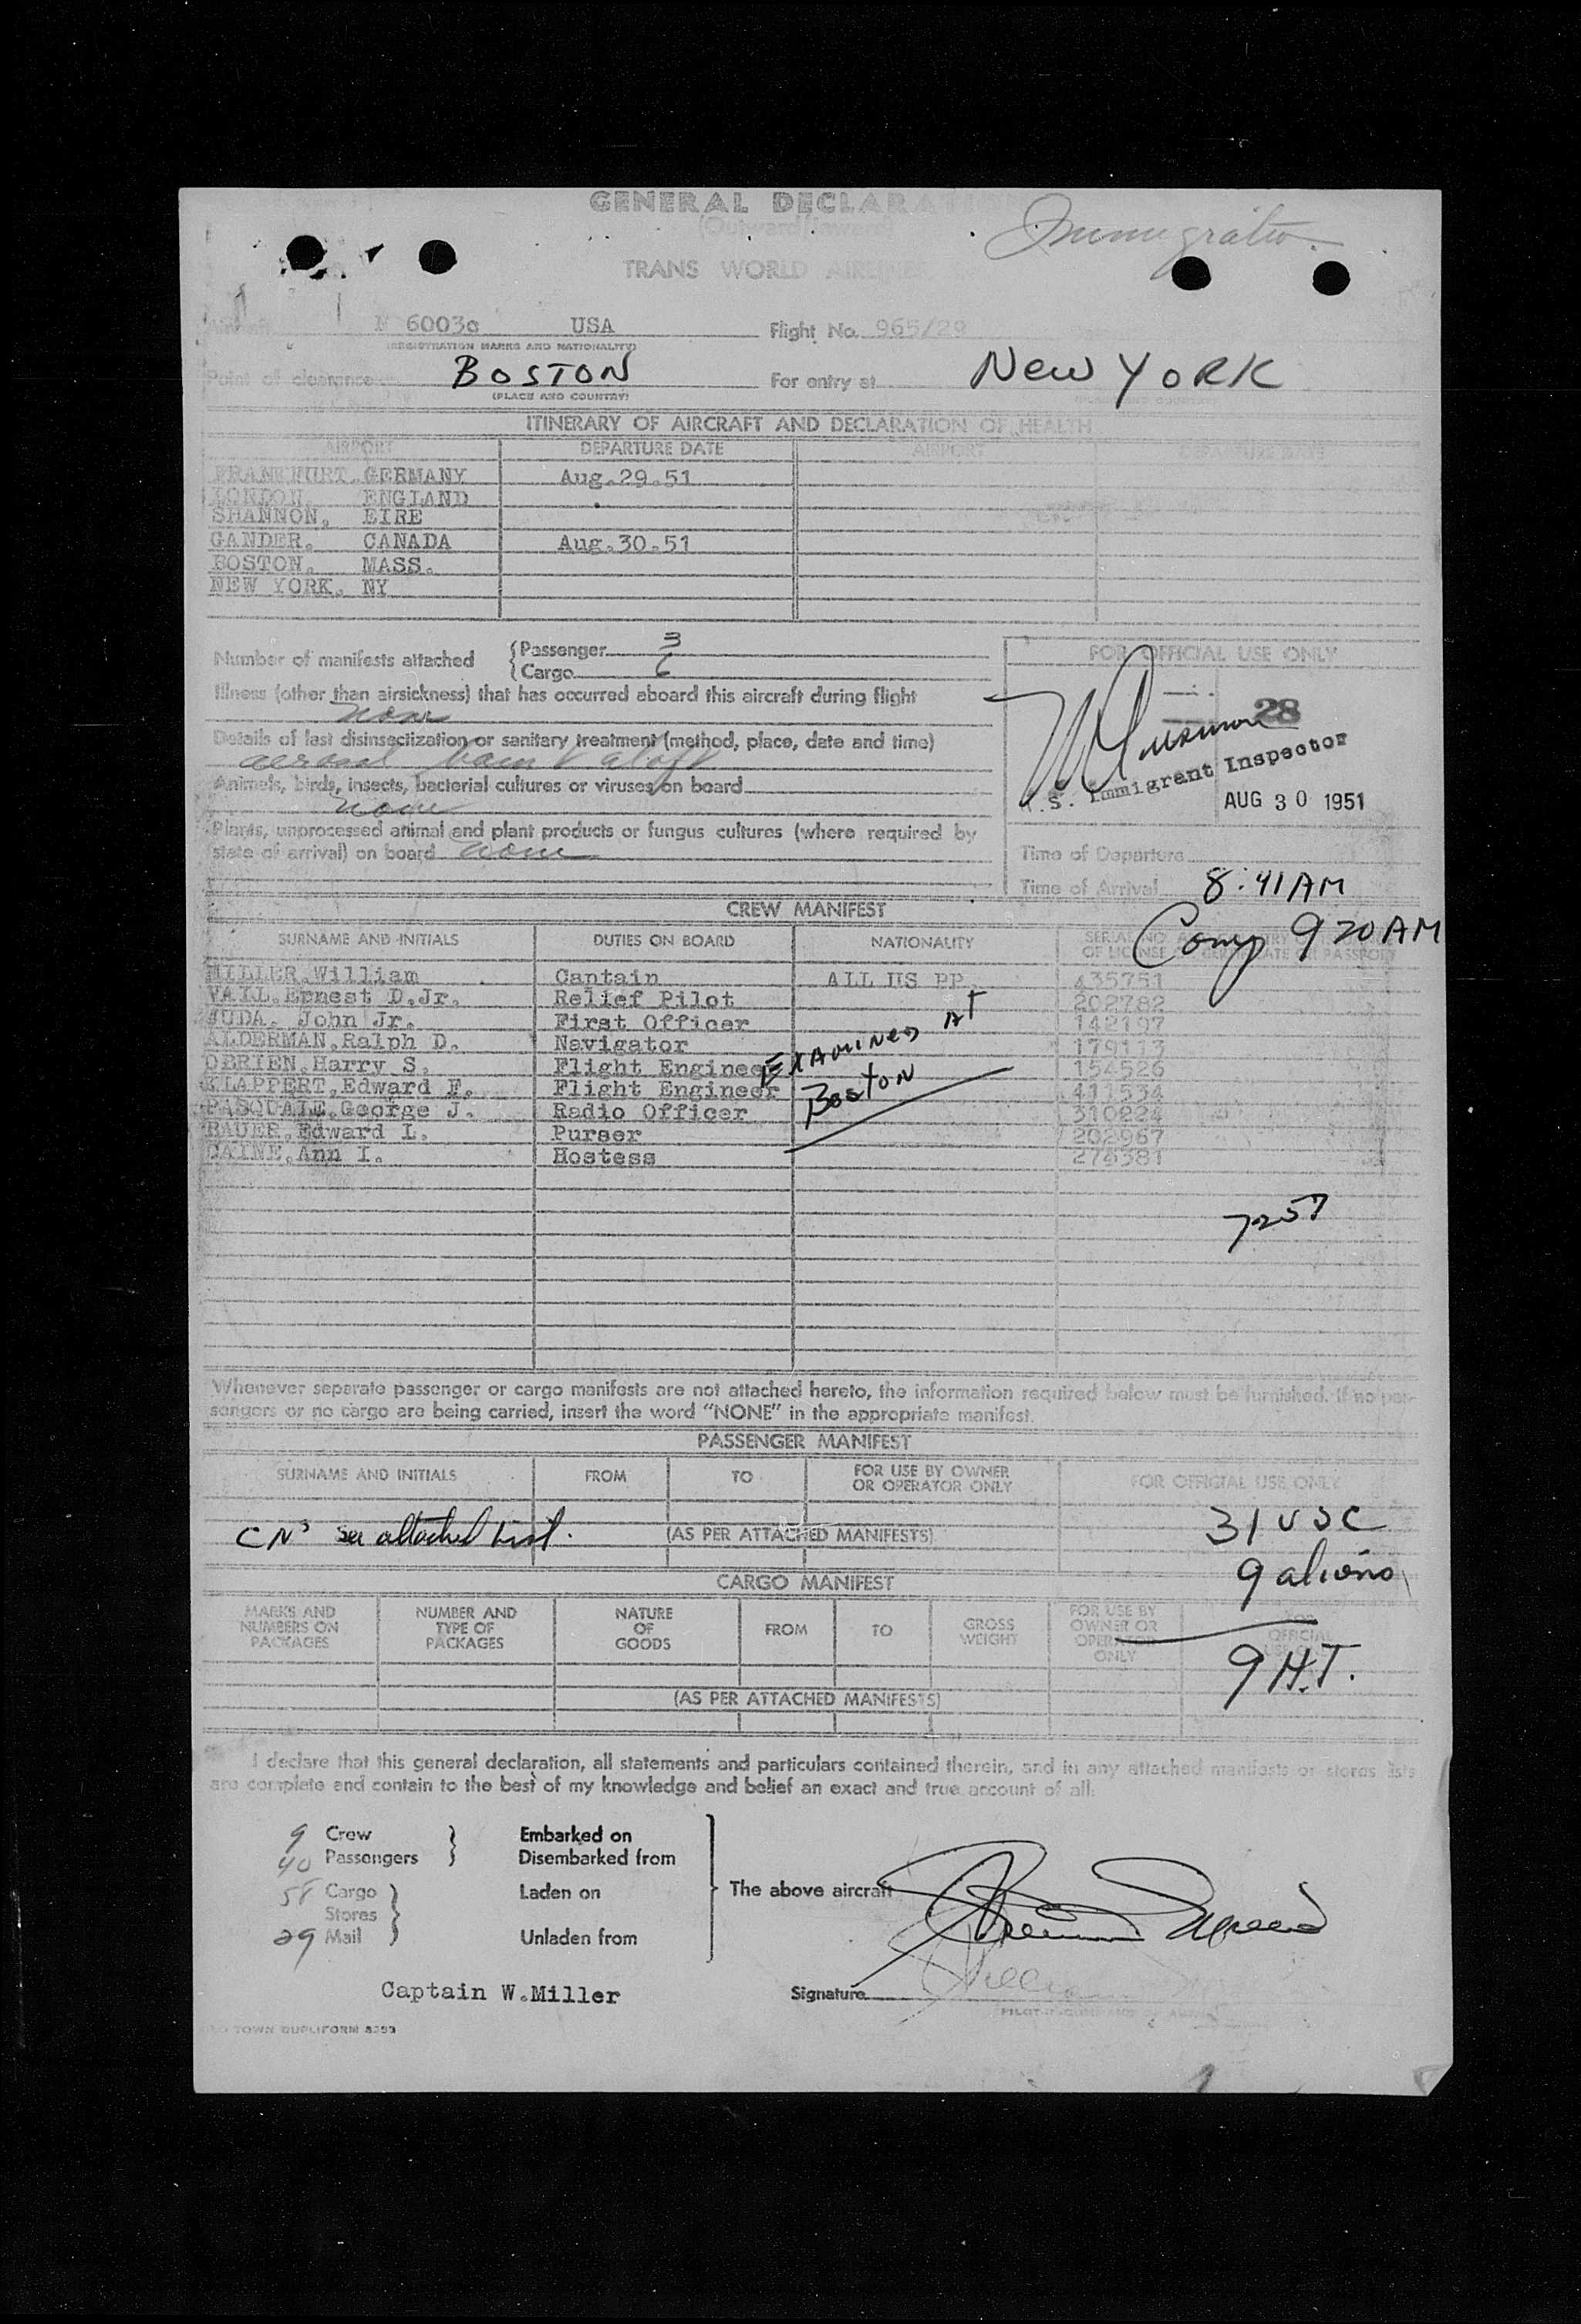 GENERAL DECLARATION
(Outward/Inward)
Immigration
TRANS WORLD AIRLINES
Aircraft N 6003c USA Flight No. 965/29
(REGISTRATION MARKS AND NATIONALITY)
Point of clearance BOSTON For entry at New YORK
(PLACE AND COUNTRY)
ITINERARY OF AIRCRAFT AND DECLARATION OF HEALTH
AIRPORT DEPARTURE DATE AIRPORT DEPARTURE DATE
FRANKFURT, GERMANY Aug.29.51
LONDON, ENGLAND
SHANNON, EIRE
GANDER, CANADA Aug.30.51
BOSTON, MASS.
NEW YORK, NY
Number of manifests attached { Passenger 3
{ Cargo 6
FOR OFFICIAL USE ONLY
Illness (other than airsickness) that has occurred aboard this aircraft during flight
none
28
Details of last disinsectization or sanitary treatment (method, place, date and time)
aerosol bomb aloft
U.S. Immigrant Inspector
Animals, birds, insects, bacterial cultures or viruses on board
none
AUG 30 1951
Plants, unprocessed animal and plant products or fungus cultures (where required by
state of arrival) on board none
Time of Departure
Time of Arrival 8:41 AM
CREW MANIFEST
Comp 9 20 AM
SURNAME AND INITIALS DUTIES ON BOARD NATIONALITY SERIAL NO. OF LICENSE CERTIFICATE OR PASSPORT
MILLER,William Captain ALL US PP 435751
VAIL,Ernest D.Jr. Relief Pilot 202782
JUDA, John Jr. First Officer 142197
ALDERMAN,Ralph D. Navigator 179113
OBRIEN,Harry S. Flight Engineer 154526
KLAPPERT,Edward F. Flight Engineer 411534
PASQUALE,George J. Radio Officer 310224
BAUER,Edward L. Purser 202967
CAINE,Ann I. Hostess 274381
EXAMINED AT
Boston
7257
Whenever separate passenger or cargo manifests are not attached hereto, the information required below must be furnished. If no pas-
sengers or no cargo are being carried, insert the word "NONE" in the appropriate manifest.
PASSENGER MANIFEST
SURNAME AND INITIALS FROM TO FOR USE BY OWNER OR OPERATOR ONLY FOR OFFICIAL USE ONLY
CN's see attached list. (AS PER ATTACHED MANIFESTS) 31 USC
9 aliens
CARGO MANIFEST
MARKS AND NUMBERS ON PACKAGES NUMBER AND TYPE OF PACKAGES NATURE OF GOODS FROM TO GROSS WEIGHT FOR USE BY OWNER OR OPERATOR ONLY FOR OFFICIAL USE ONLY
9 H.T.
(AS PER ATTACHED MANIFESTS)
I declare that this general declaration, all statements and particulars contained therein, and in any attached manifests or stores lists
are complete and contain to the best of my knowledge and belief an exact and true account of all:
9 Crew } Embarked on
40 Passengers } Disembarked from
58 Cargo } Laden on The above aircraft
Stores
29 Mail } Unladen from
Captain W.Miller Signature
PILOT-IN-COMMAND
TOWN DUPLIFORM